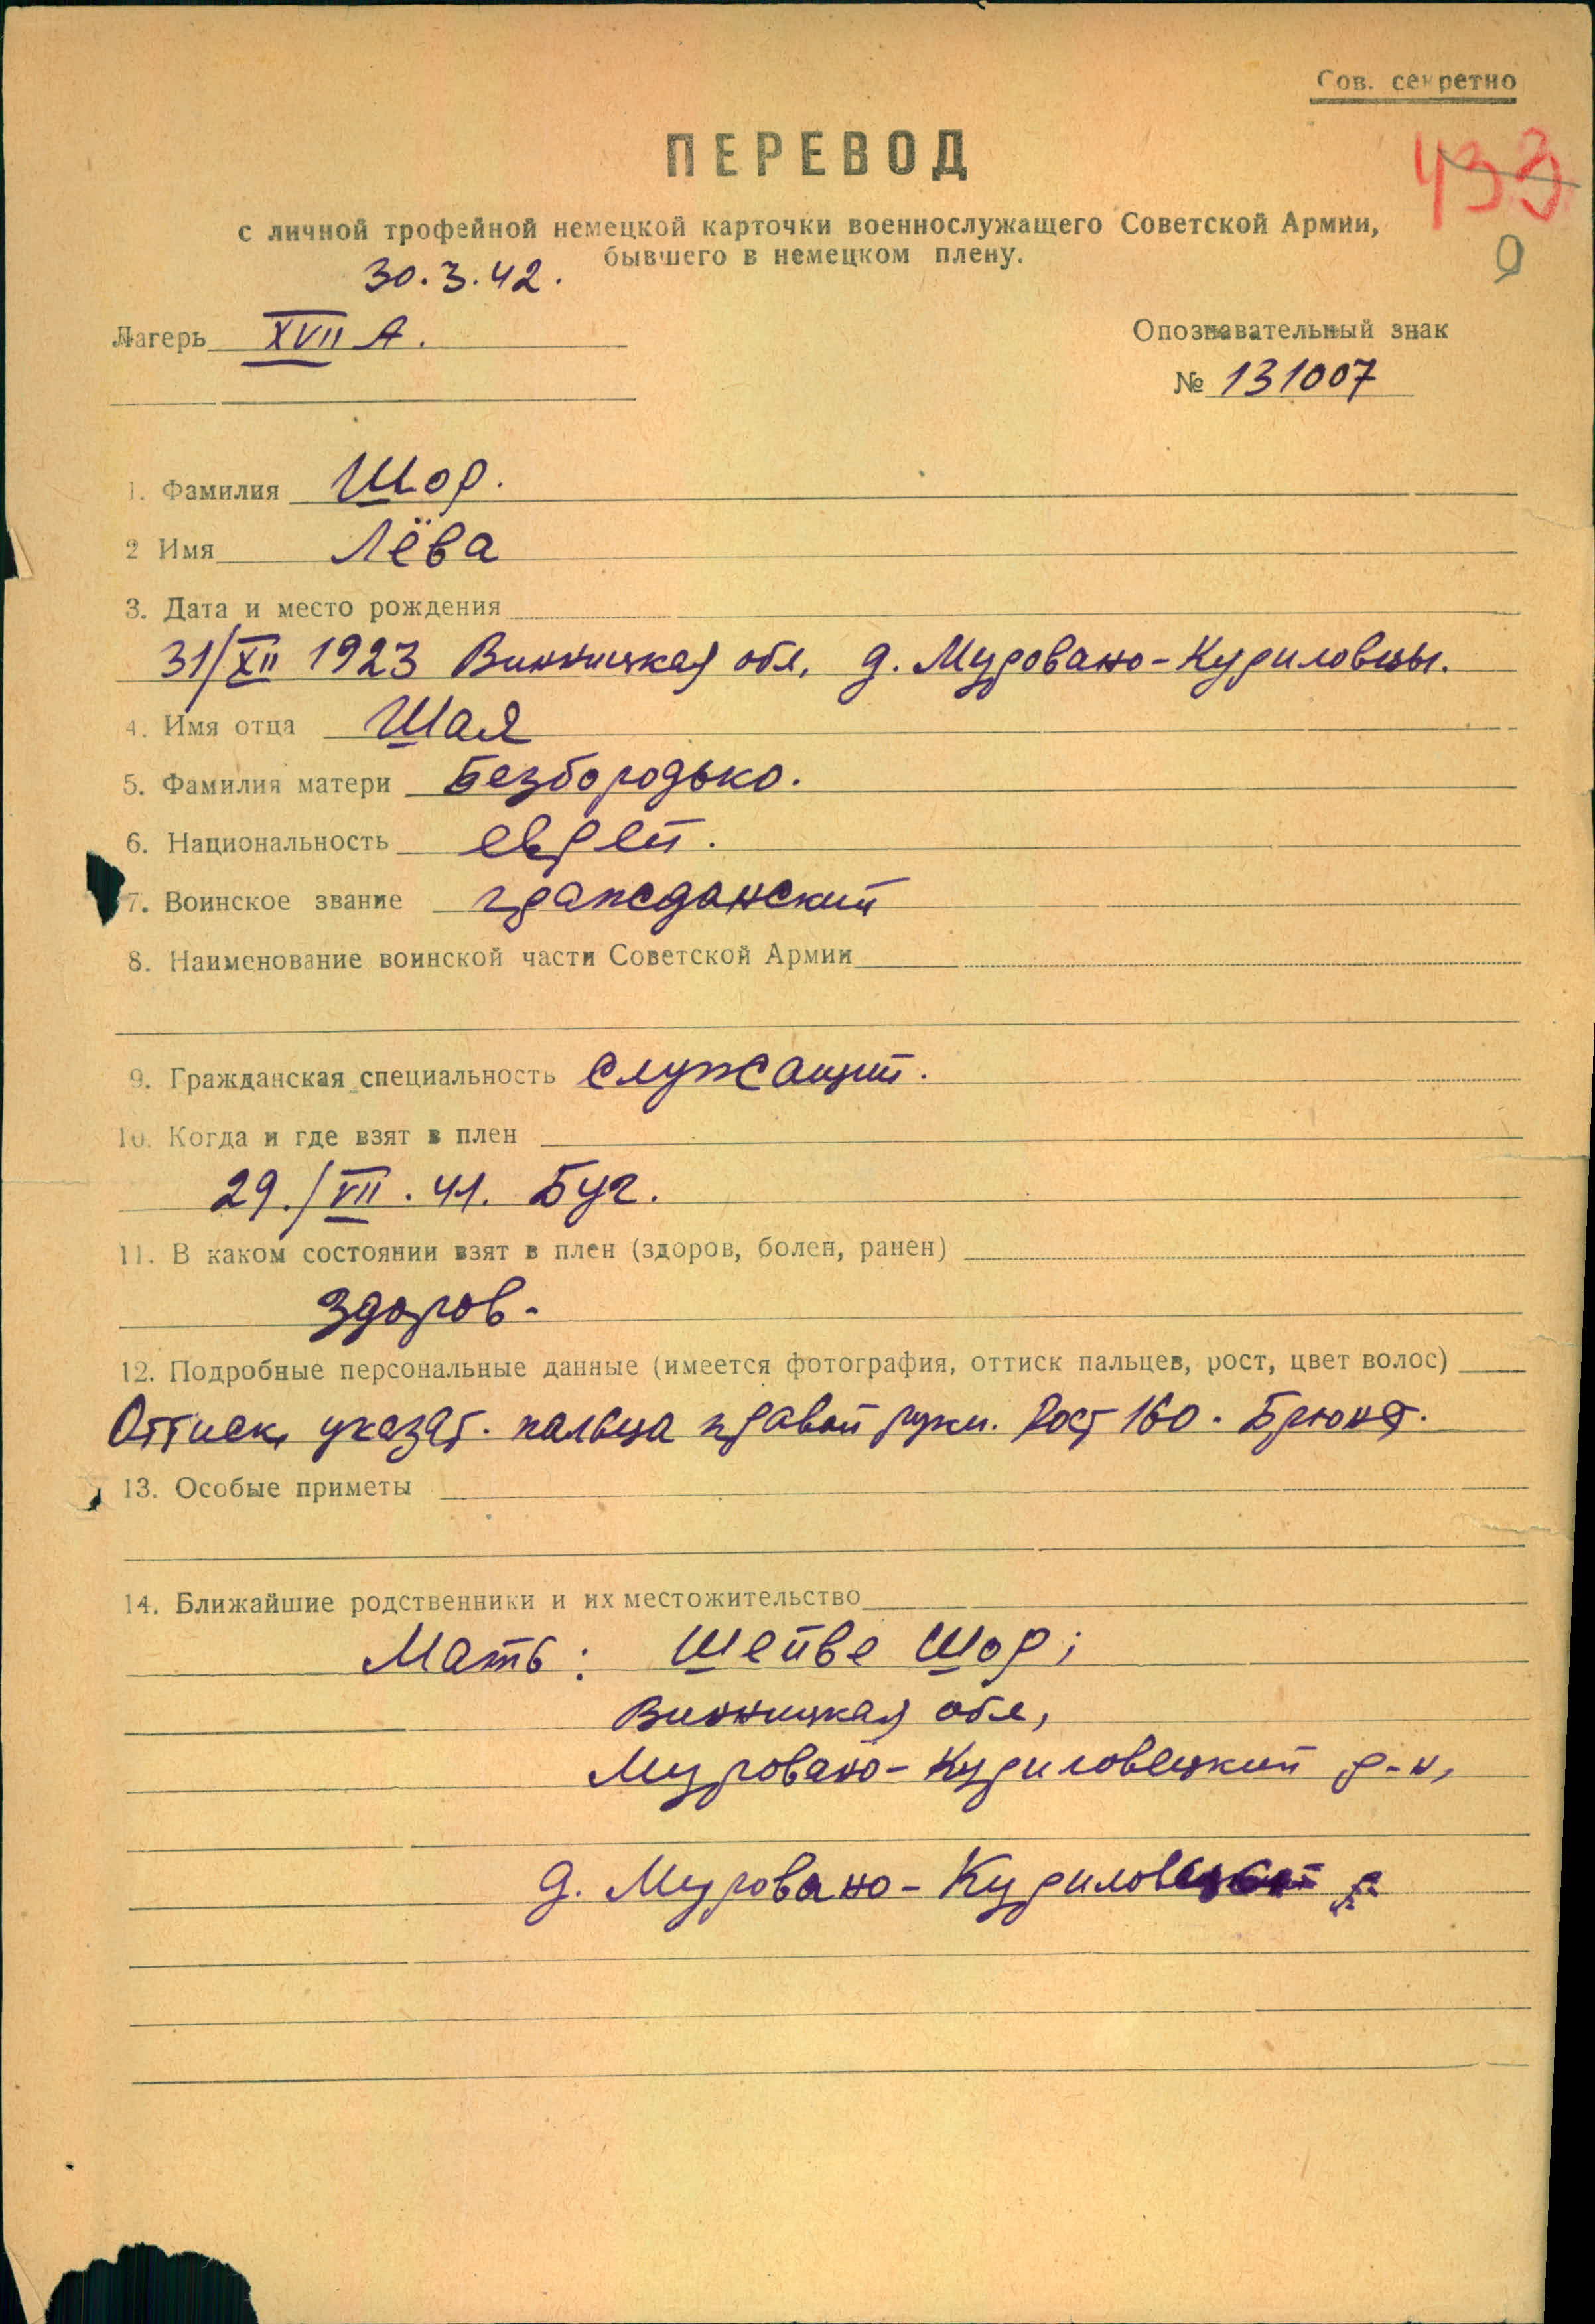 Сов. секретно
ПЕРЕВОД
с личной трофейной немецкой карточки военнослужащего Советской Армии,
бывшего в немецком плену.
30.3.42.
Лагерь XVII A.
Опознавательный знак
№ 131007
1. Фамилия Шор.
2 Имя Лёва
3. Дата и место рождения
31/XII 1923 Винницкая обл, д. Мурованo-Куриловцы.
4. Имя отца Шая
5. Фамилия матери Безбородько.
6. Национальность еврей.
7. Воинское звание гражданский
8. Наименование воинской части Советской Армии
9. Гражданская специальность служащий.
10. Когда и где взят в плен
29./VII. 41. Буг.
11. В каком состоянии взят в плен (здоров, болен, ранен)
здоров-
12. Подробные персональные данные (имеется фотография, оттиск пальцев, рост, цвет волос)
Оттиск указат. пальца правой руки. Рост 160. Брюнет.
13. Особые приметы
14. Ближайшие родственники и их местожительство
Мать: Шейве Шор;
Винницкая обл,
Муровано-Куриловецкий р-н,
д. Муровано-